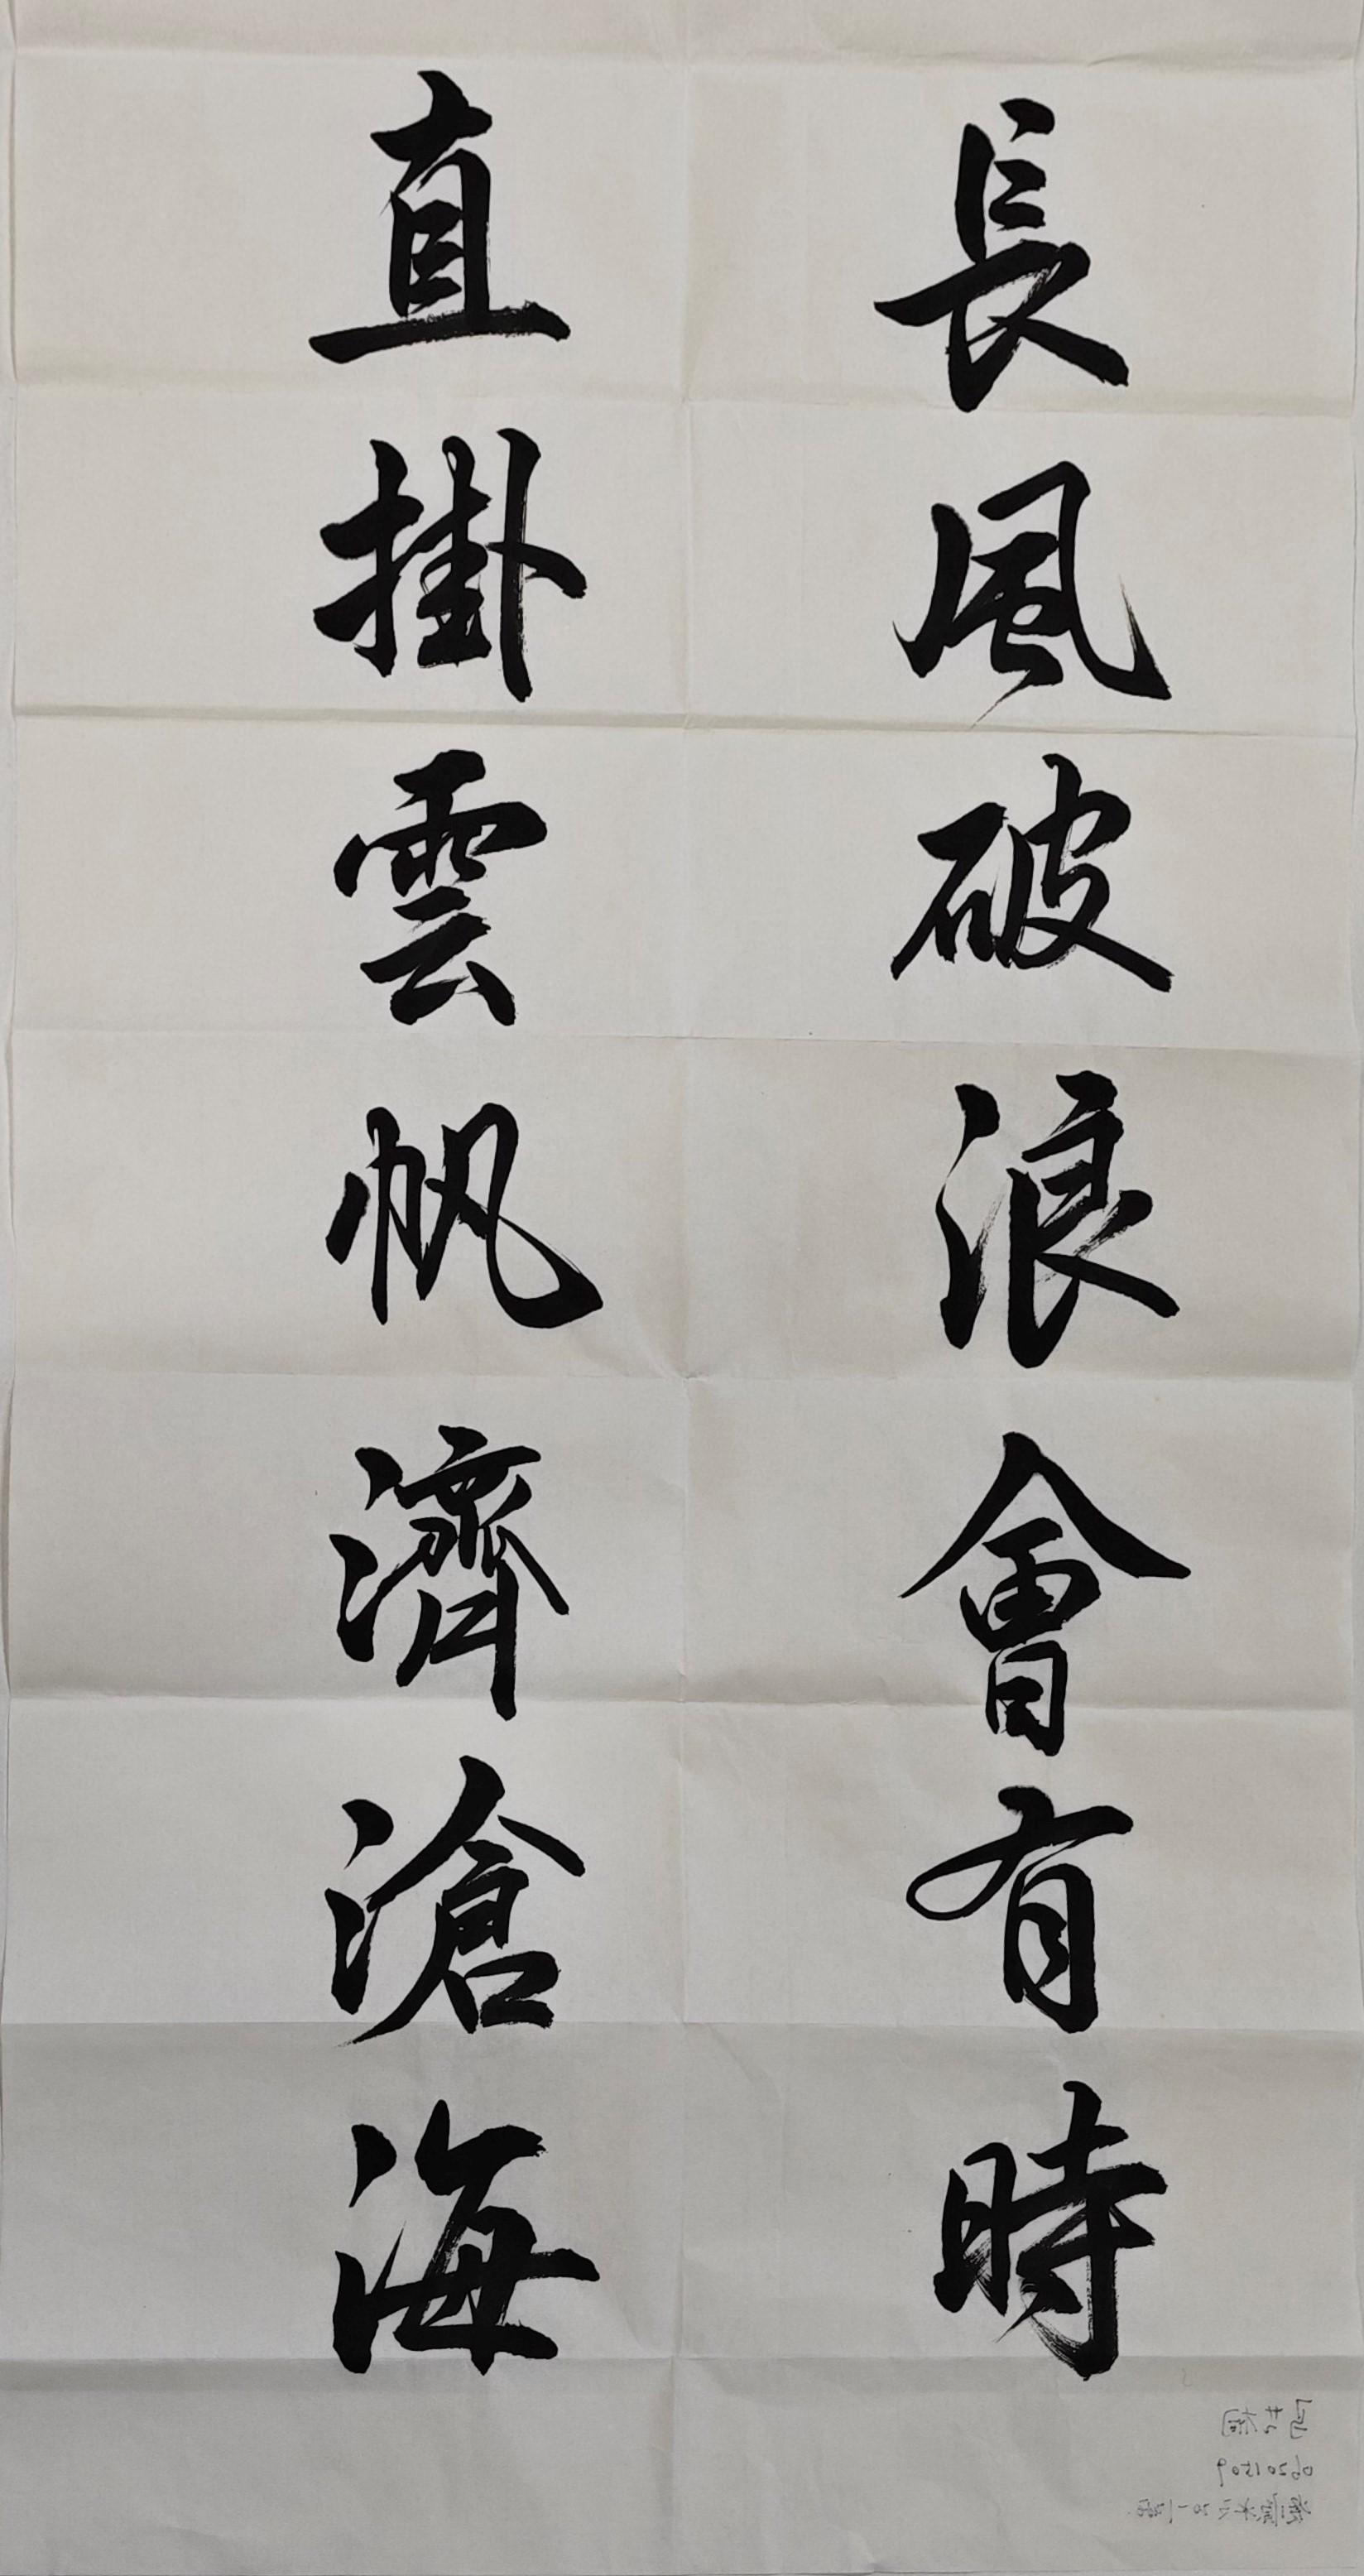 長風破浪會有時
直掛雲帆濟滄海
06201509